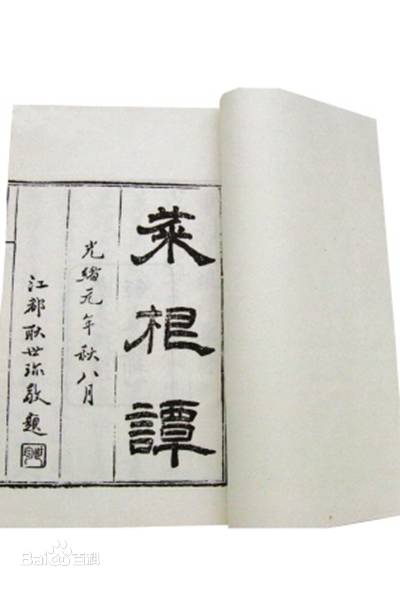 菜根譚
光緒元年秋八月
江都耿世珎敬題
Baidu百科